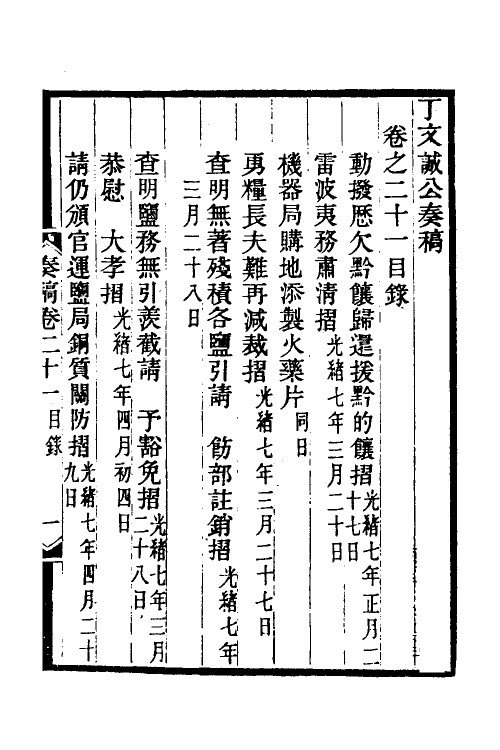 丁文誠公奏稿
卷之二十一目錄
動撥歷欠黔饟歸還援黔的饟摺光緒七年正月二十七日
雷波夷務肅清摺光緒七年三月二十日
機器局購地添製火藥片同日
勇糧長夫難再減裁摺光緒七年三月二十七日
查明無著殘積各鹽引請 飭部註銷摺光緒七年
三月二十八日
查明鹽務無引羨截請 予豁免摺光緒七年三月二十八日
恭慰 大孝摺光緒七年四月初四日
請仍頒官運鹽局銅質關防摺光緒七年四月二十九日
奏稿卷二十一目錄 一